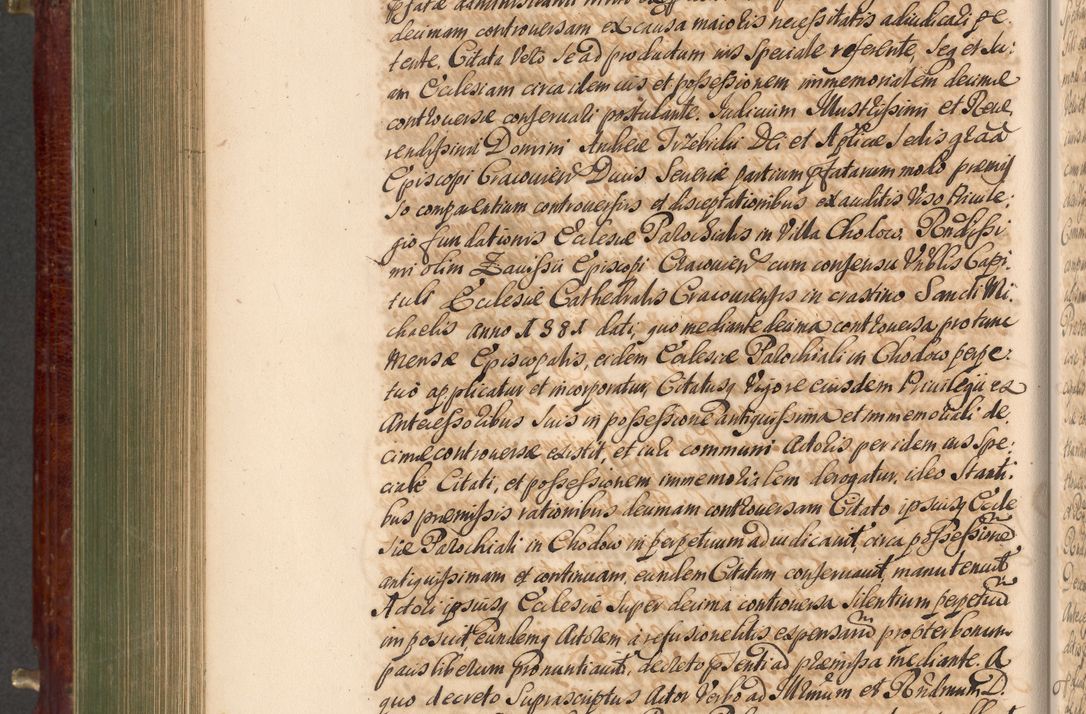 deumam controversam ex causa maioris necessitatis adiudicari pe:
tente. Citata vero se ad productum ius speciale referente, seq et su:
am Ecclesiam circa idem ius et possessionem immemorialem decimæ
controversæ conservari postulante. Iudicium Illustrissimi et Reve
rendissimi Domini Andreæ Trzebicki Dei et Aplicæ Sedis graâ
Episcopi Cracovien Ducis Severiæ partium pfatarum modo præmis
so comparentium controversiis et disceptationibus exauditis viso Privile:
gio fundationis Ecclesiæ Parochialis in Villa Chodow, Rndissi
mi olim Zavissii Episcopi Cracovien cum consensu Vnblis Capi
tuli Ecclesiæ Cathedralis Cracoviensis in crastino Sancti Mi:
chaelis anno 1381 dati, quo mediante decima controversa pro tunc
Mensæ Episcopalis, eidem Ecclesiæ Parochiali in Chodow perpe:
tuo applicatur et incorporatur, Citatusq vigore eiusdem Privilegii ex
Antecessoribus suis in possessione antiquissima et immemoriali de
cimæ controversæ existit, et iuri communi Actoris per idem ius spe:
ciale Citati, et possessionem immemorialem derogatur, ideo stanti:
bus præmissis rationibus decimam controversam Citato ipsiusq Eccle
siæ Parochiali in Chodow in perpetuum adiudicavit, circa possessionem
antiquissimam et continuam, eundem Citatum conservavit, manutenuit
Actori ipsiusq Ecclesiæ super decima controversa silentium perpetuū
imposuit, eundemq Actorem a refusione litis expensarum propter bonum
pacis liberum pronuntiavit, decreto psenti ad præmissa mediante. A
quo decreto suprascriptus Actor verbo ad Illmum et Rndmum D.